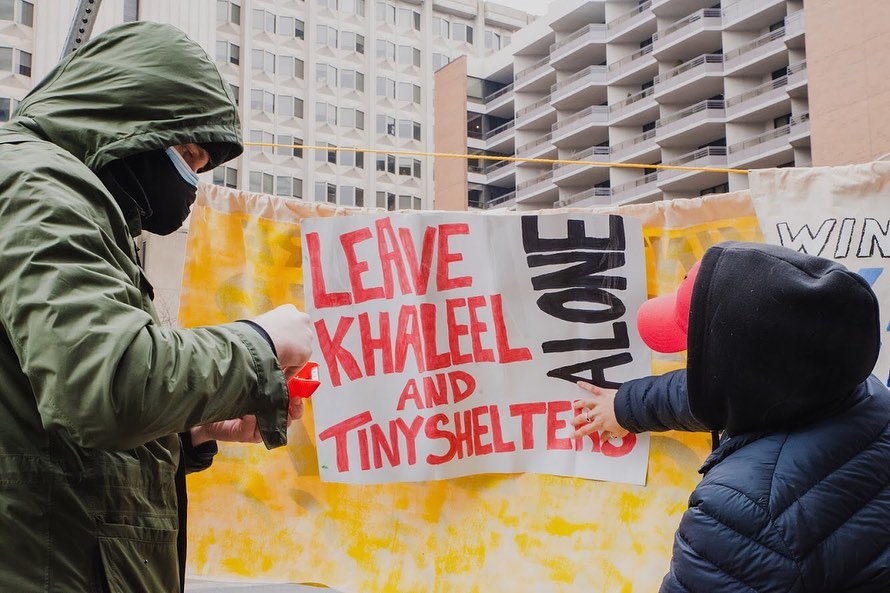 LEAVE
KHALEEL
AND
TINYSHELTERS
ALONE
WIN